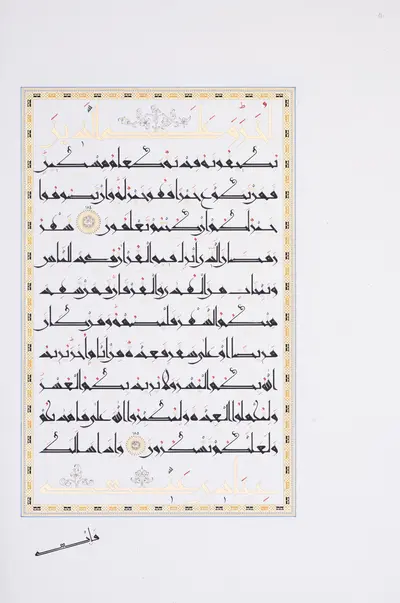 أخر وعلى الذين
يطيقونه فدية طعام مسكين
فمن تطوع خيرا فهو خير له وأن تصوموا
خير لكم إن كنتم تعلمون شهر
رمضان الذي أنزل فيه القرآن هدى للناس
وبينات من الهدى والفرقان فمن شهد
منكم الشهر فليصمه ومن كان
مريضا أو على سفر فعدة من أيام أخر يريد
الله بكم اليسر ولا يريد بكم العسر
ولتكملوا العدة ولتكبروا الله على ما هداكم
ولعلكم تشكرون وإذا سألك
عبادي عني
فإني